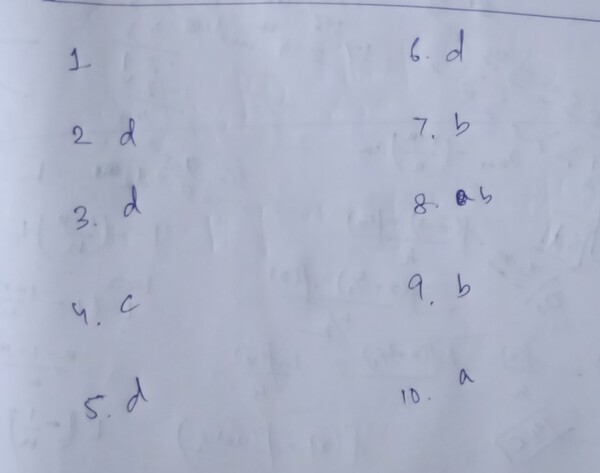 1
2 d
3. d
4. c
5. d
6. d
7. b
8. b
9. b
10. a